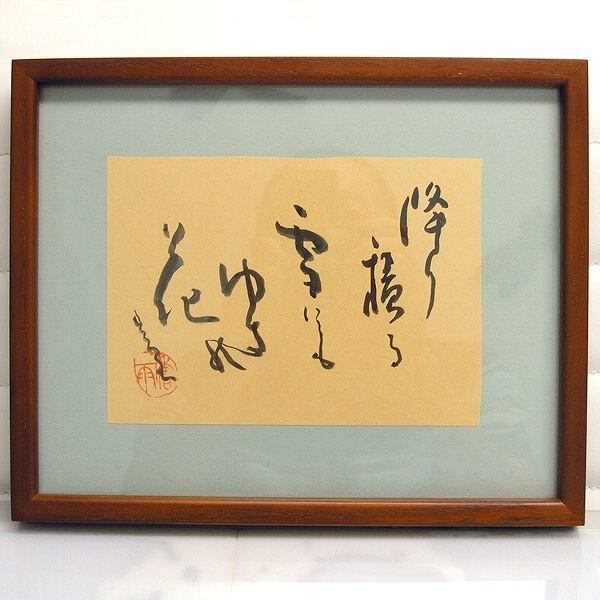 降り
積る
雪にも
ゆるぬ
花